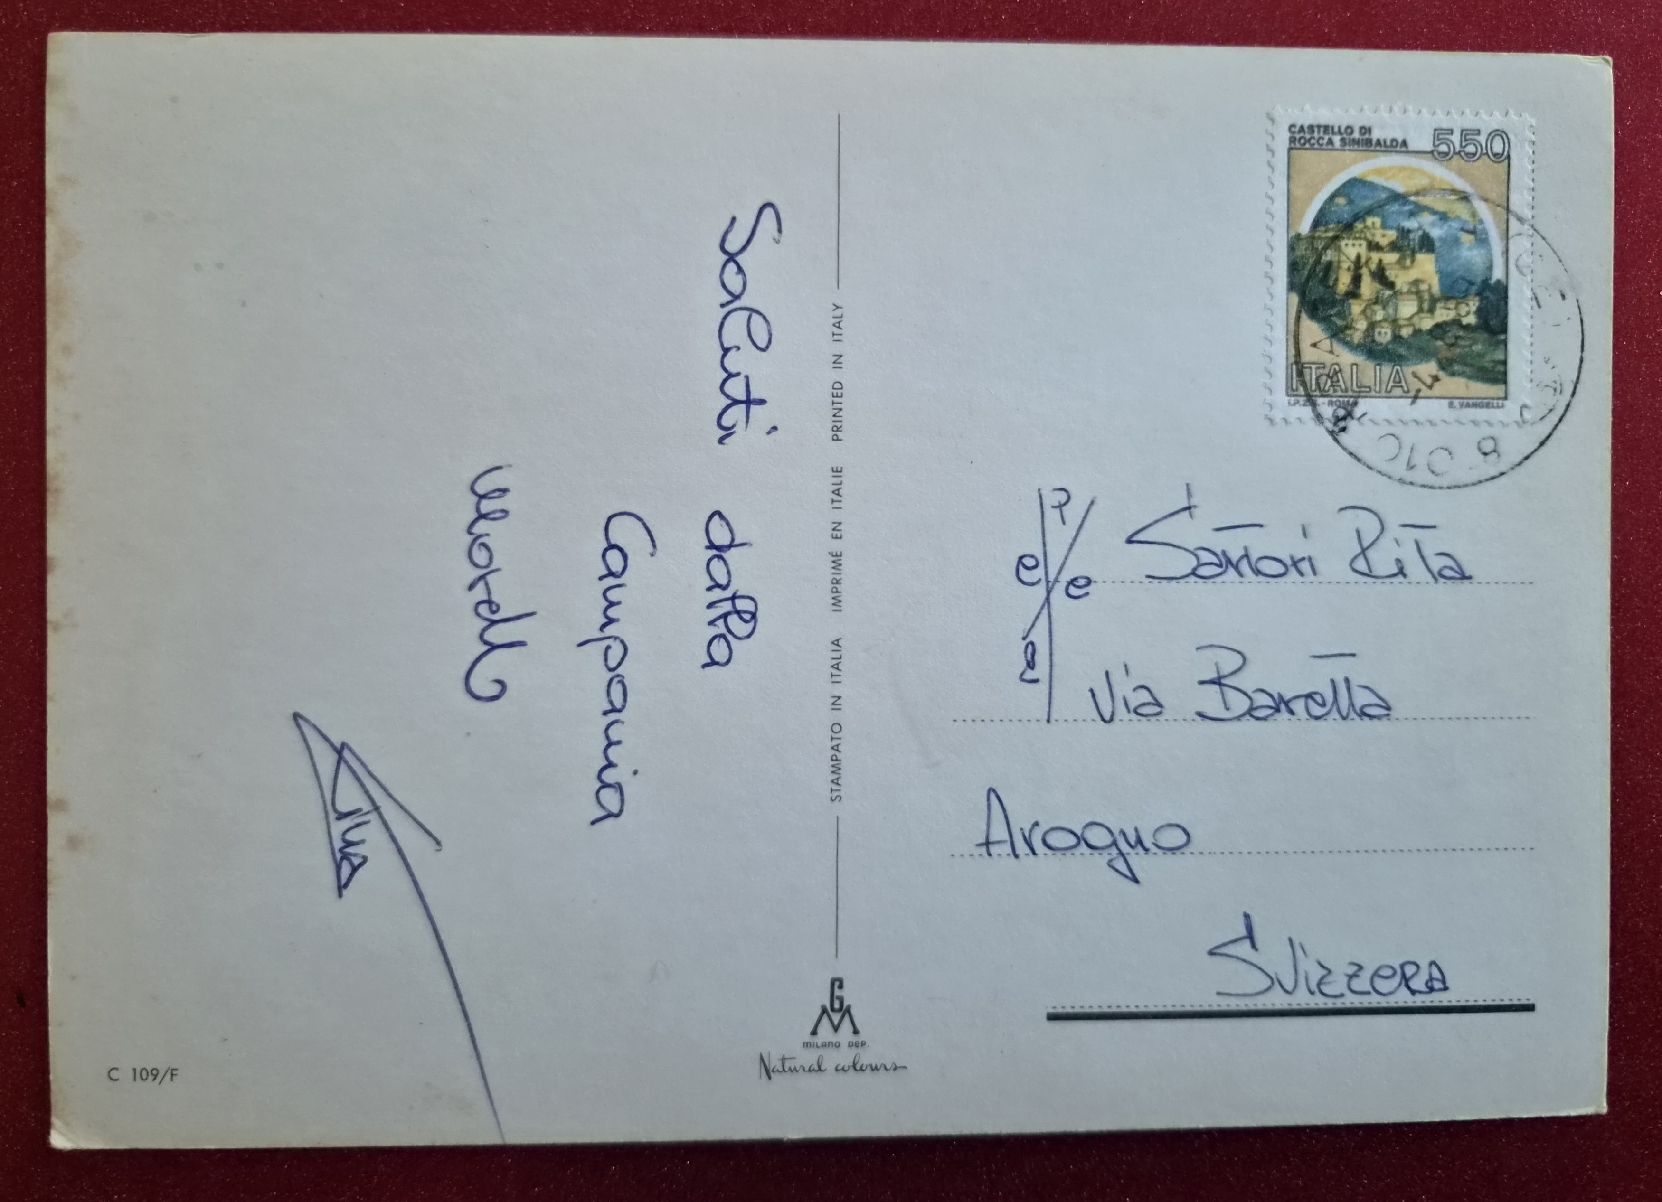 Saluti dalla
Campania
STAMPATO IN ITALIA IMPRIMÉ EN ITALIE PRINTED IN ITALY
GM
MILANO DEP.
Natural colours
C 109/F
CASTELLO DI
ROCCA SINIBALDA
550
ITALIA
I.P.Z.S. - ROMA
E. VANGELLI
Sartori Rita
Via Baretta
Arogno
Svizzera